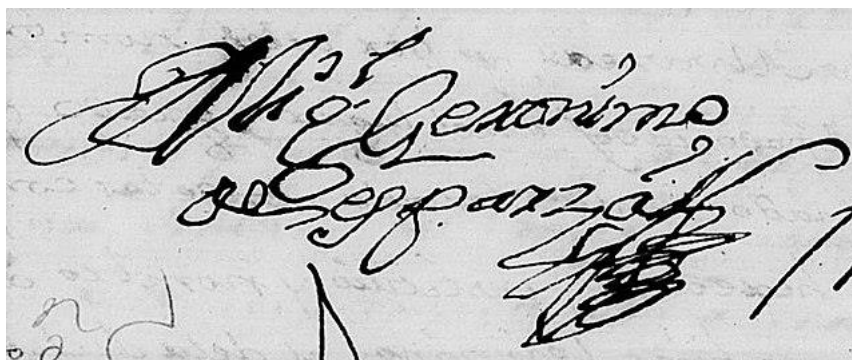 Migl Geronimo
de Esparza